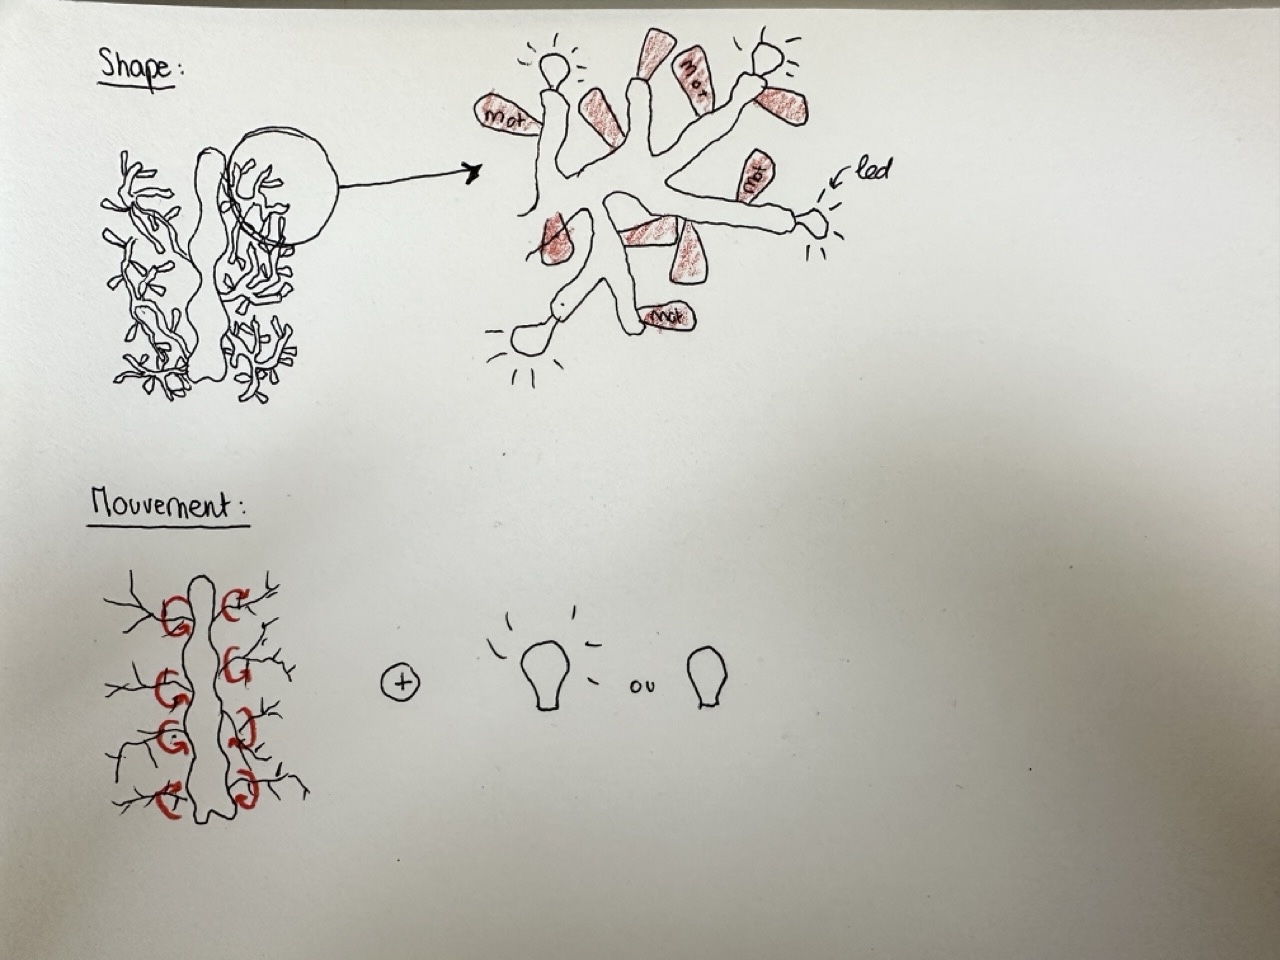 Shape:
mot
mot
mot
led
mot
Mouvement:
+
ou